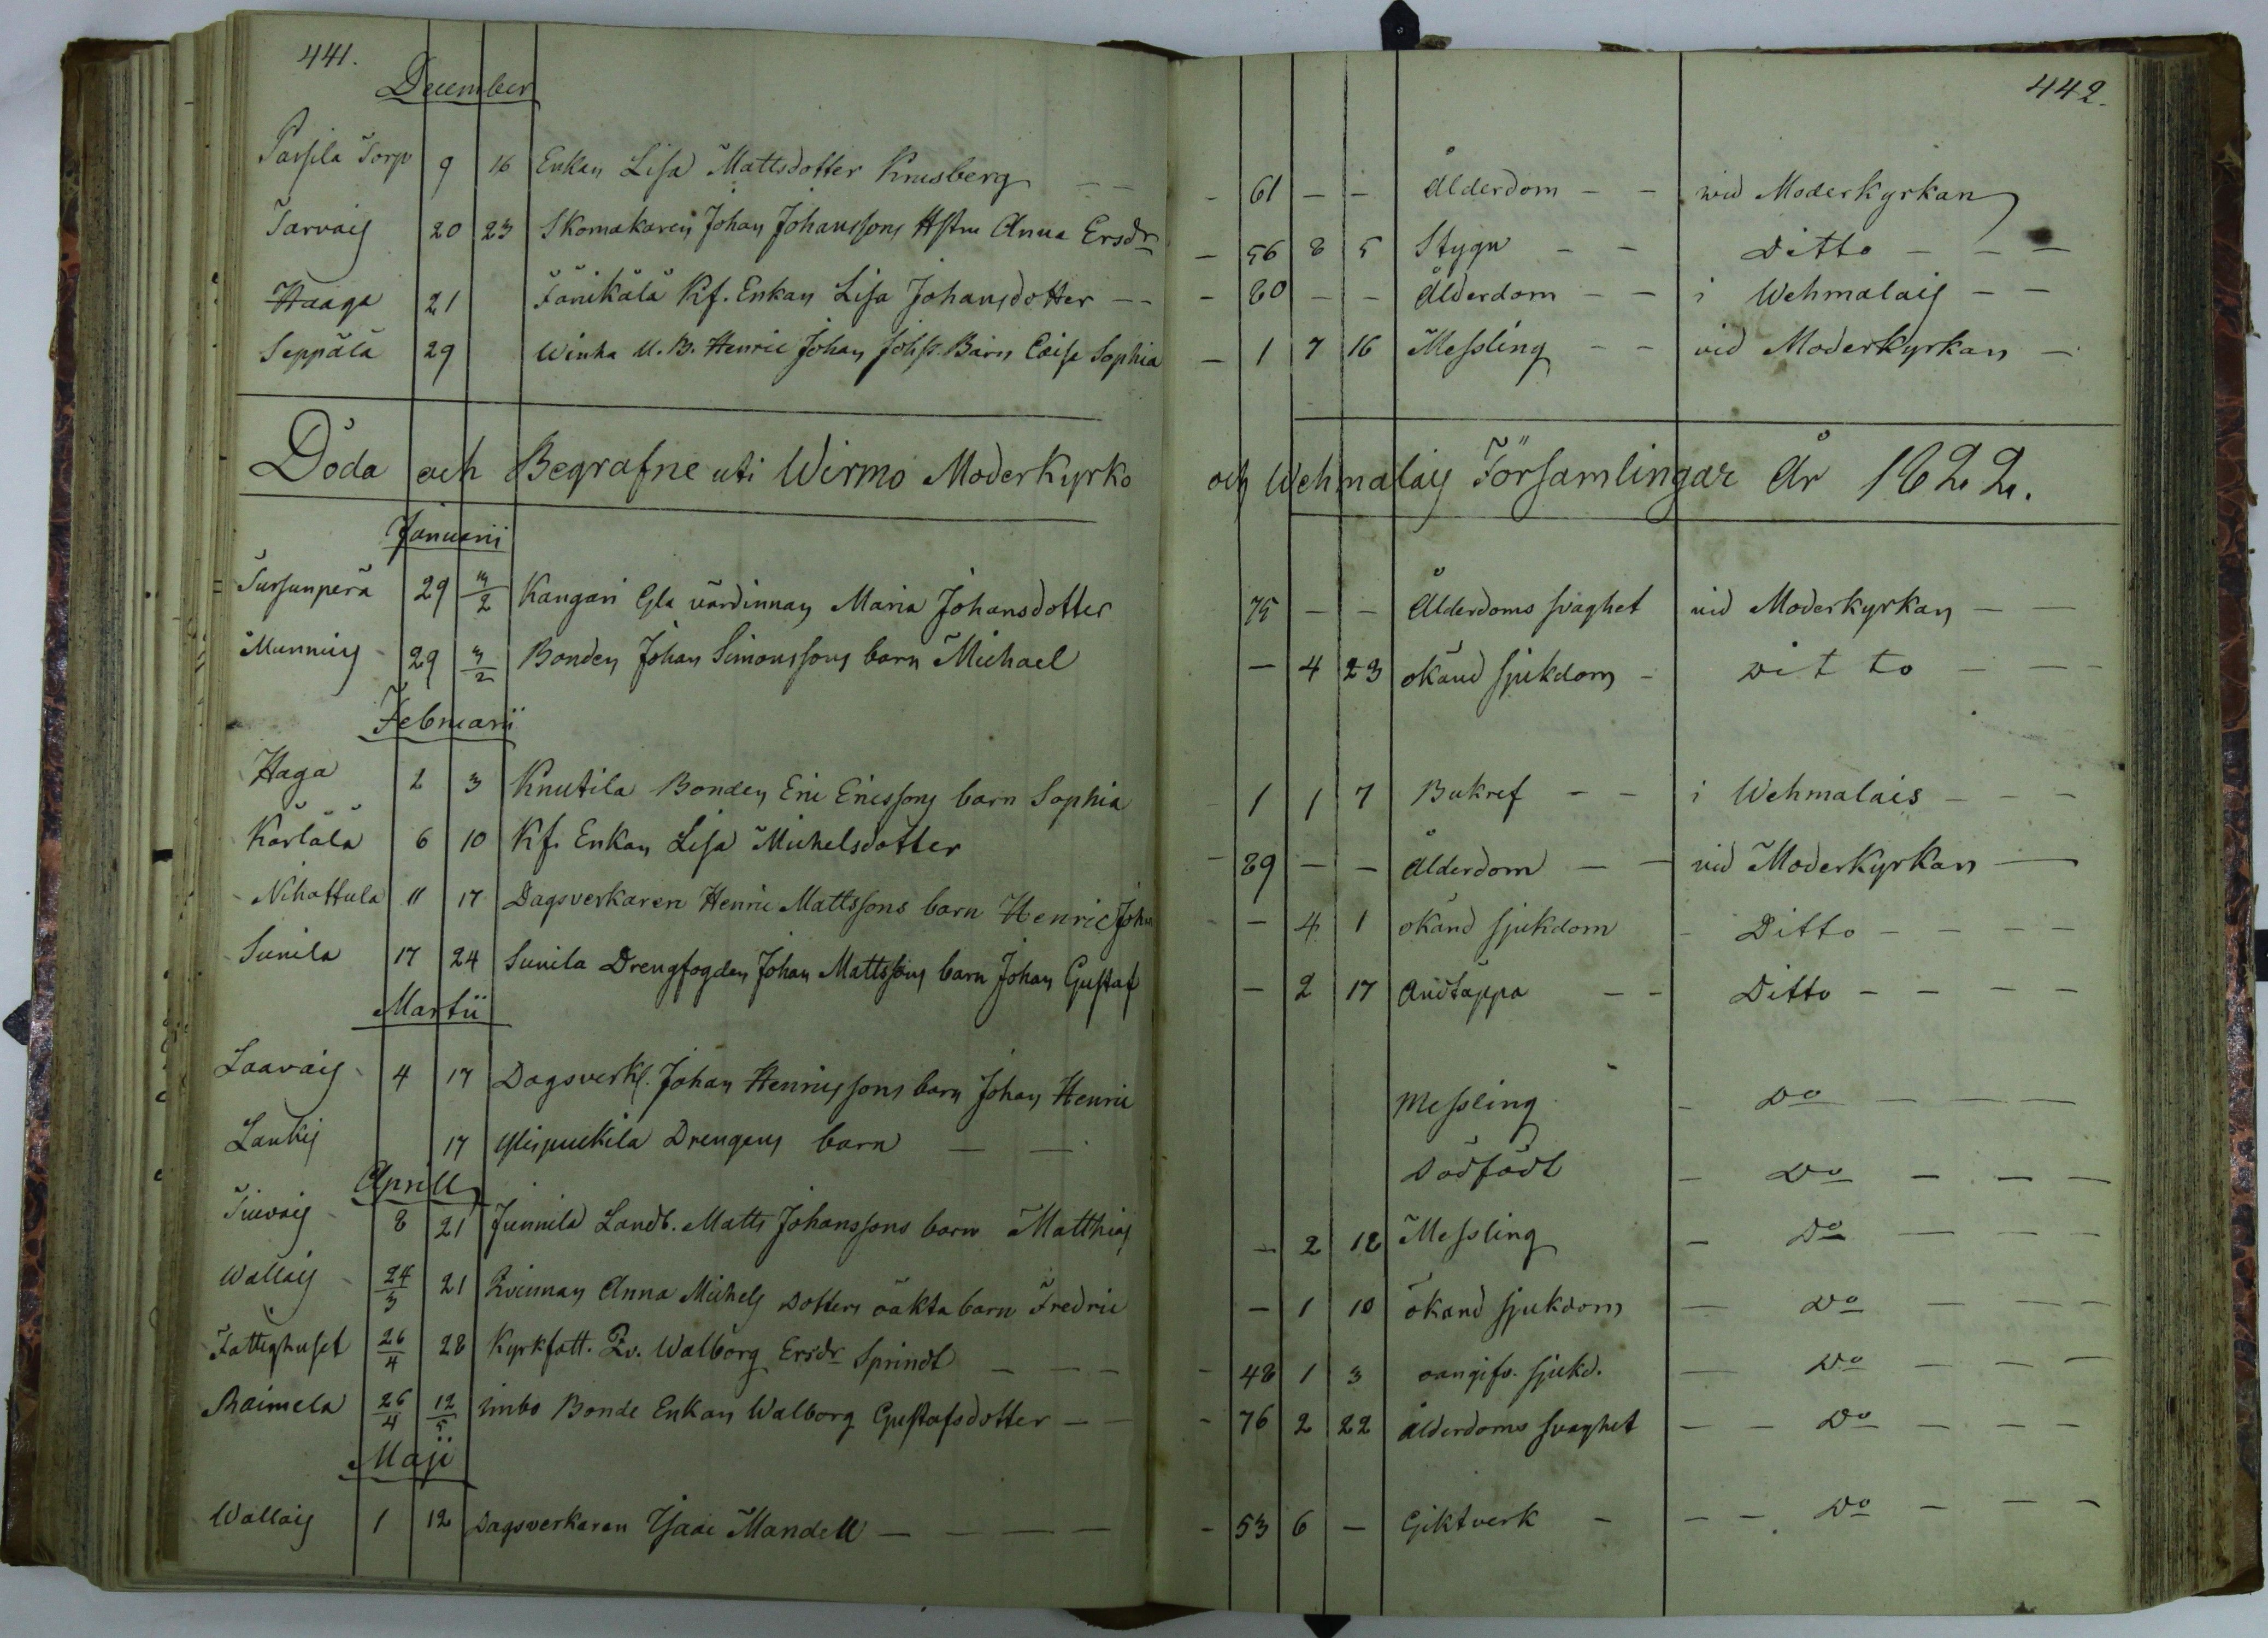 441.
442.
December
Passila Torp 9 16 Enkan Lisa Mattsdotter Krusberg - - - 61 - - Ålderdom - - wid Moderkyrkan
Tarvais 20 23 Skomakaren Johan Johanssons Hstru Anna Ersdr - 56 8 5 Stygn - - Ditto - - -
Haaga 21 Fänikälä Kf. Enkan Lisa Johansdotter - - - 80 - - Ålderdom - - i Wehmalais - -
Seppälä 29 Winka U. B. Henric Johan Johss. Barn Caisa Sophia - 1 7 16 Messling - - vid Moderkyrkan -
Döda och Begrafne uti Wirmo Moderkyrko och Wehmalais Församlingar År 1822.
Januarii
Tursunperä 29 3/2 Kangari Gla värdinnan Maria Johansdotter 75 - - Ålderdoms svaghet vid Moderkyrkan - -
Munnuis 29 3/2 Bonden Johan Simonssons barn Michael - 4 23 okänd sjukdom - ditto - - -
Februarii
Haga 2 3 Knutila Bonden Eric Ericssons barn Sophia - 1 1 7 Bukref - - i Wehmalais - - -
Karlälä 6 10 Kf. Enkan Lisa Michelsdotter - 89 - - Ålderdom - - vid Moderkyrkan -
Nihattula 11 17 Dagsverkaren Henric Mattssons barn Henric Johan - - 4 1 okänd sjukdom - Ditto - - - -
Sunila 17 24 Sunila Drengfogden Johan Mattssons barn Johan Gustaf - 2 17 Andtäppa - - Ditto - - - -
Martii
Laavais 4 17 Dagsverk. Johan Henricssons barn Johan Henric Messling - Do - - -
Lankis 17 Drengens barn - - Dödfödt - Do - - -
Aprill
8 21 Junnila Landb. Matts Johanssons barn Matthias - 2 18 Messling - Do - - -
Wallais 24/3 21 Qvinnan Anna Michels Dotters oäkta barn Fredric - 1 10 okänd sjukdom - Do - - -
Fattighuset 26/4 28 Kyrkfatt. Qv. Walborg Ersdr Sprindt - - - - 48 1 3 oangifv. sjukd. - Do - - -
Raimela 26/4 12/5 imbo Bonde Enkan Walborg Gustafsdotter - - - 76 2 22 Ålderdoms svaghet - - Do - - -
Maji
Wallais 1 12 Dagsverkaren Isaac Mandell - - - - - 53 6 - Giktverk - - - Do - - -